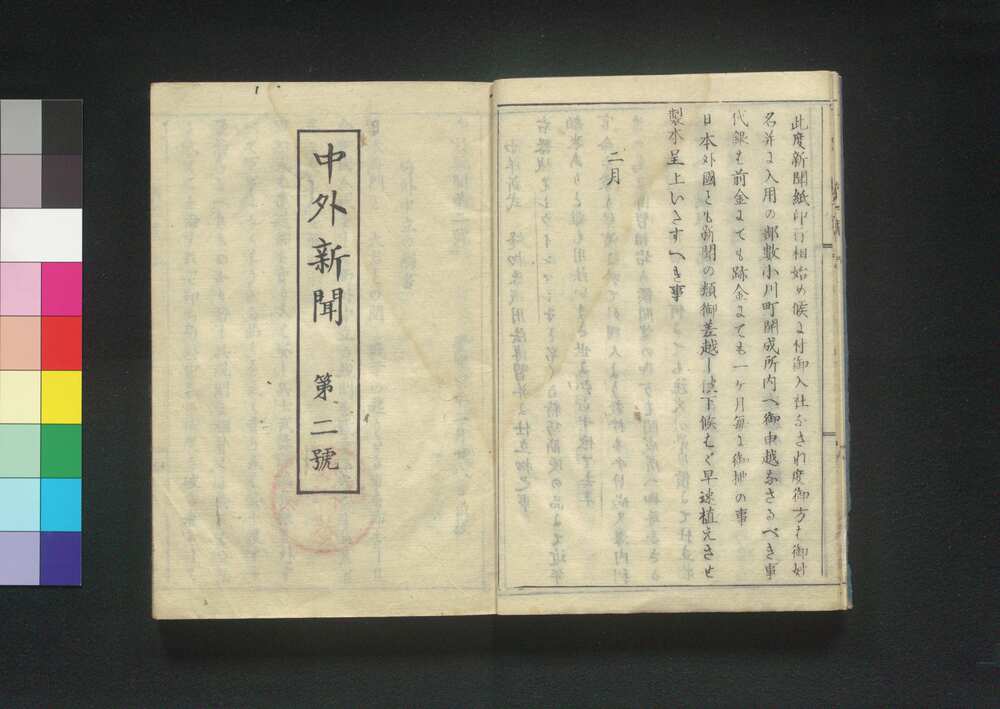 此度新聞紙印行相始め候に付御入社なされ度御方は御姓
名并に入用の部數小川町開成所内へ御申越なさるべき事
代銀は前金にても跡金にても一ヶ月毎に御拂の事
日本外國とも新聞の類御差越し被下候はゞ早速植えさせ
製本呈上いたすべき事
二月
中外新聞 第二號